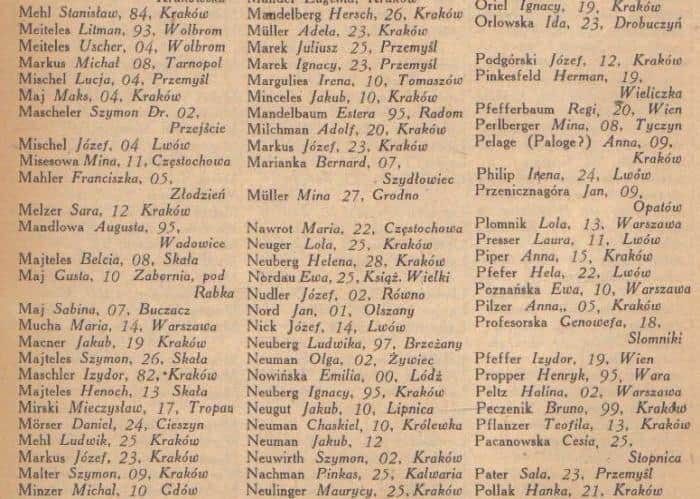 Mehl Stanisław, 84, Kraków
Meiteles Litman, 93, Wolbrom
Meiteles Uscher, 04, Wolbrom
Markus Michał 08, Tarnopol
Mischel Lucja, 04, Przemyśl
Maj Maks, 04, Kraków
Mascheler Szymon Dr. 02,
Przejście
Mischel Józef, 04 Lwów
Misesowa Mina, 11, Częstochowa
Mahler Franciszka, 05,
Złodzień
Melzer Sara, 12 Kraków
Mandlowa Augusta, 95,
Wadowice
Majteles Belcia, 08, Skała
Maj Gusta, 10 Zabornia, pod
Rabka
Maj Sabina, 07, Buczacz
Mucha Maria, 14, Warszawa
Macner Jakub, 19 Kraków
Majteles Szymon, 26, Skała
Maschler Izydor, 82, Kraków
Majteles Henoch, 13 Skała
Mirski Mieczysław, 17, Tropau
Mörser Daniel, 24, Cieszyn
Mehl Ludwik, 25 Kraków
Markus Józef, 23, Kraków
Malter Szymon, 09, Kraków
Minzer Michał, 10 Gdów
Mandelberg Hersch, 26, Kraków
Müller Adela, 23, Kraków
Marek Juliusz 25, Przemyśl
Marek Ignacy, 23, Przemyśl
Margulies Irena, 10, Tomaszów
Minceles Jakub, 10, Kraków
Mandelbaum Estera 95, Radom
Milchman Adolf, 20, Kraków
Markus Józef, 23, Kraków
Marianka Bernard, 07,
Szydłowiec
Müller Mina 27, Grodno
Nawrot Maria, 22, Częstochowa
Neuger Lola, 25, Kraków
Neuberg Helena, 28, Kraków
Nordau Ewa, 25, Książ. Wielki
Nudler Józef, 02, Równo
Nord Jan, 01, Olszany
Nick Józef, 14, Lwów
Neuberg Ludwika, 97, Brzeżany
Neuman Olga, 02, Żywiec
Nowińska Emilia, 00, Łódź
Neuberg Ignacy, 95, Kraków
Neugut Jakub, 10, Lipnica
Neuman Chaskiel, 10, Królewka
Neuman Jakub, 12
Neuwirth Szymon, 02, Kraków
Nachman Pinkas, 25, Kalwaria
Neulinger Maurycy, 25, Kraków
Oriel Ignacy, 19, Kraków
Orlowska Ida, 23, Drobuczyń
Podgórski Józef, 12, Kraków
Pinkesfeld Herman, 19,
Wieliczka
Pfefferbaum Regi, 20, Wien
Perlberger Mina, 08, Tyczyn
Pelage (Paloge?) Anna, 09,
Kraków
Philip Irena, 24, Lwów
Przenicznagóra Jan, 09,
Opatów
Plomnik Lola, 13, Warszawa
Presser Laura, 11, Lwów
Piper Anna, 15, Kraków
Pfefer Hela, 22, Lwów
Poznańska Ewa, 10, Warszawa
Pilzer Anna,, 05, Kraków
Profesorska Genowefa, 18,
Słomniki
Pfeffer Izydor, 19, Wien
Propper Henryk, 95, Wara
Peltz Halina, 02, Warszawa
Peczenik Bruno, 99, Kraków
Pflanzer Teofila, 13, Kraków
Pacanowska Cesia, 25,
Stopnica
Pater Sala, 23, Przemyśl
Pollak Hanka, 21, Kraków